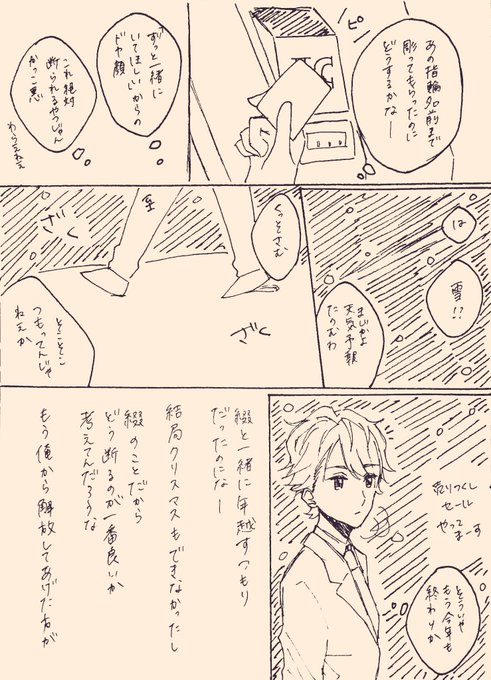 ピッ
あの指輪名前まで
彫ってもらったのに
どうするかなー
IC
ずっと一緒に
いてほしいからの
ドヤ顔
これ絶対
断られるやつじゃん
かっこ悪
わらえねぇ
は
雪!?
まじかよ
天気予報
たのむわ
くっそさむ
ざく
ざく
そこそこ
つもってんじゃ
ねぇか
売りつくし
セール
やって
まーす
そういや
もう今年も
終わりか
綴と一緒に年越すつもり
だったのになー
結局クリスマスもできなかったし
綴のことだから
どう断るのが一番良いか
考えてんだろうな
もう俺から解放してあげた方が